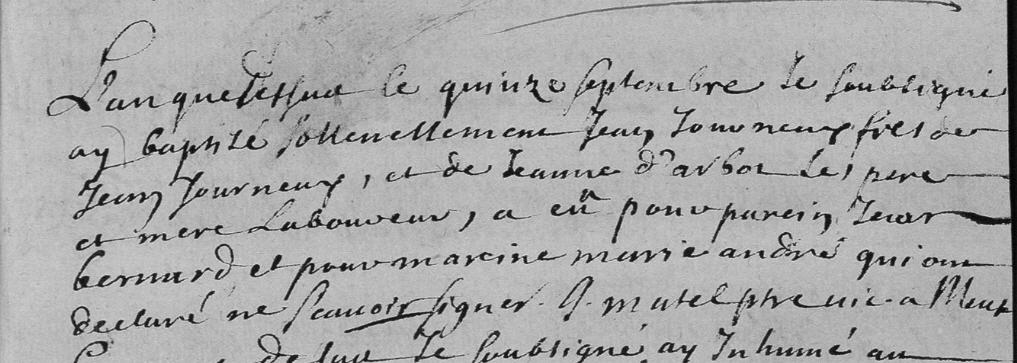 L'an que dessus le quinze septembre Je soubsigné
ay baptisé sollenellement Jean Journeux fils de
Jean Journeux, et de Jeanne d'arbot les pere
et mere Laboureur, a eu pour parein Jean
bernard et pour mareine marie andré qui ont
declaré ne scauoir signer. J. matel ptre uic. a
de sus Je soubsigné ay Inhumé au